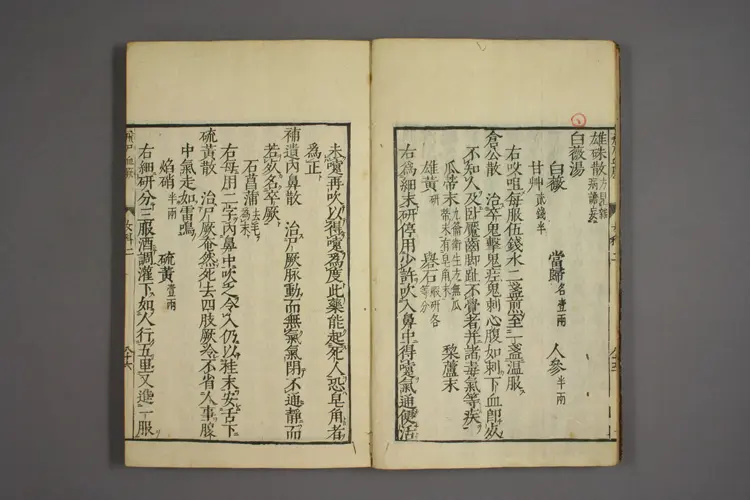 雄硃散方見鐸病證去
白薇湯
白薇 當歸各壹兩 人參半兩
甘艸貳錢半
右㕮咀每服伍錢水二盞煎至一盞温服
倉公散 治卒鬼擊鬼疰鬼刺心腹如刺下血卽死
不知人及臥魘齧脚趾不覺者并諸毒氣等疾
瓜帝末 藜蘆末
雄黃研 礬石煅研各等分
右爲細末研停用少許吹入鼻中得嚔氣通便活
未嚔再吹以得嚔爲度此藥能起死人恐皂角者
爲正
補遺内鼻散 治尸厥脉動而無氣氣閉不通靜而
若死名卒厥
石菖蒲去毛爲末
右每用二字内鼻中吹之令人仍以桂末安舌下
硫黃散 治尸厥奄然死去四肢厥冷不省人事腹
中氣走如雷鳴
焰硝半兩 硫黃壹兩
右細研分三服酒調灌下如人行五里又進一服
女科二